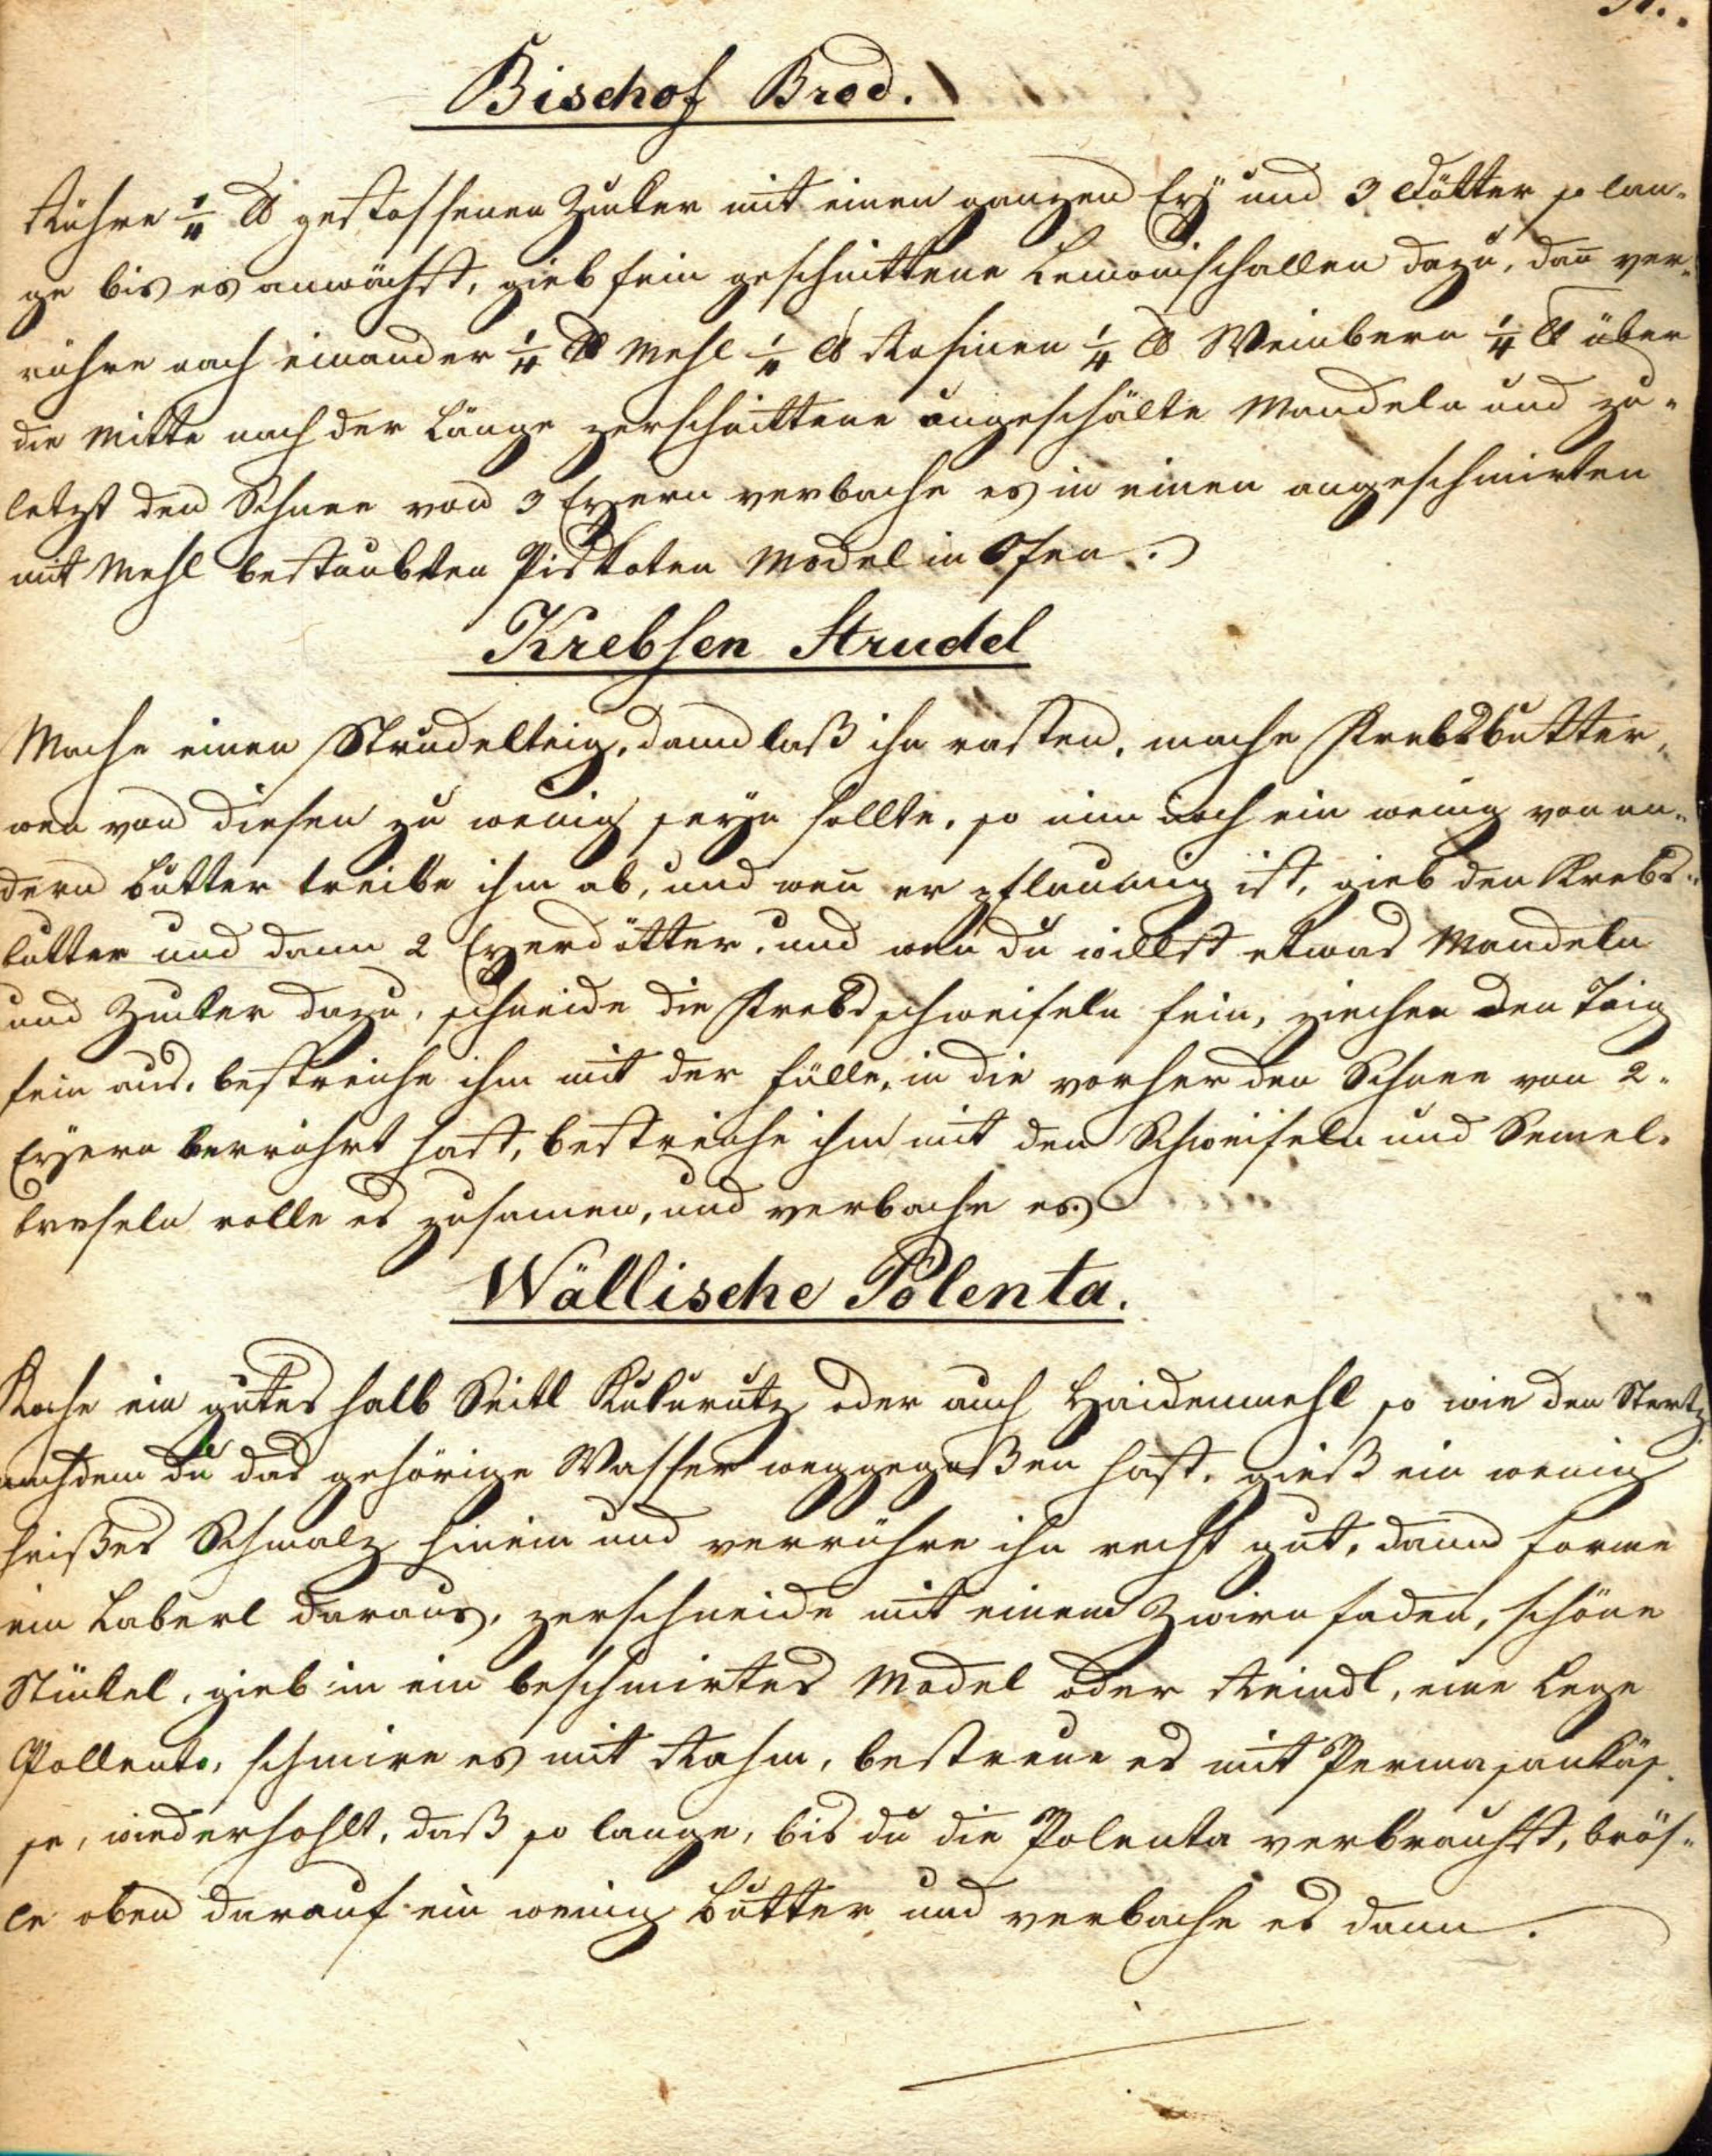 Bischof Brod.
Rühre ¼ ℔ gestossenen Zucker mit einen ganzen Ey und 3 Dötter so lan-
ge bis es anwächst, gieb fein geschnittene Lemonischallen dazu, dan̄ ver-
rühre nach einander ¼ ℔ Mehl ¼ ℔ Rosinen ¼ ℔ Weinbern ¼ ℔ über
die Mitte nach der Länge zerschnittene ungeschälte Mandeln und zu-
letzt den Schnee von 3 Eyern verbache es in einen angeschmirten
mit Mehl bestaubten Piskoten Model in Ofen.
Krebsen Strudel
Mache einen Strudelteig, dann laß ihn rasten, mache Krebsbutter,
wen von diesen zu wenig seyn sollte, so nim noch ein wenig von an-
dern butter treibe ihm ab, und wen̄ er pflaumig ist, gieb den Krebs-
butter und dann 2 Eyerdötter, und wen du willst etwas Mandeln
und Zucker dazu, schneide die Krebsschweifeln fein, ziehe den Teig
fein aus, bestreiche ihm mit der fülle, in die vorher den Schnee von 2
Eyern verrührt hast, bestreiche ihm mit den Schweifeln und Semel-
bröseln rolle es zusamen, und verbache es.
Wällische Polenta.
Koche ein gutes halb Seitl Kukurutz oder auch Haidenmehl so wie den Stertz
nachdem du das gehörige Wasser weggegoßen hast, gieß ein wenig
heißes Schmalz hinein und verrühre ihn recht gut, dann forme
ein Laberl daraus, zerschneide mit einem Zwirnfaden, schöne
Stückel, gieb in ein beschmirtes Model oder Reindl, eine Lege
Pollenta, schmire es mit Rahm, bestreue es mit Permasankäs-
se, wiederhohlt, daß so lange, bis du die Polenta verbrauchst, brös-
le oben darauf ein wenig Butter und verbache es dann.